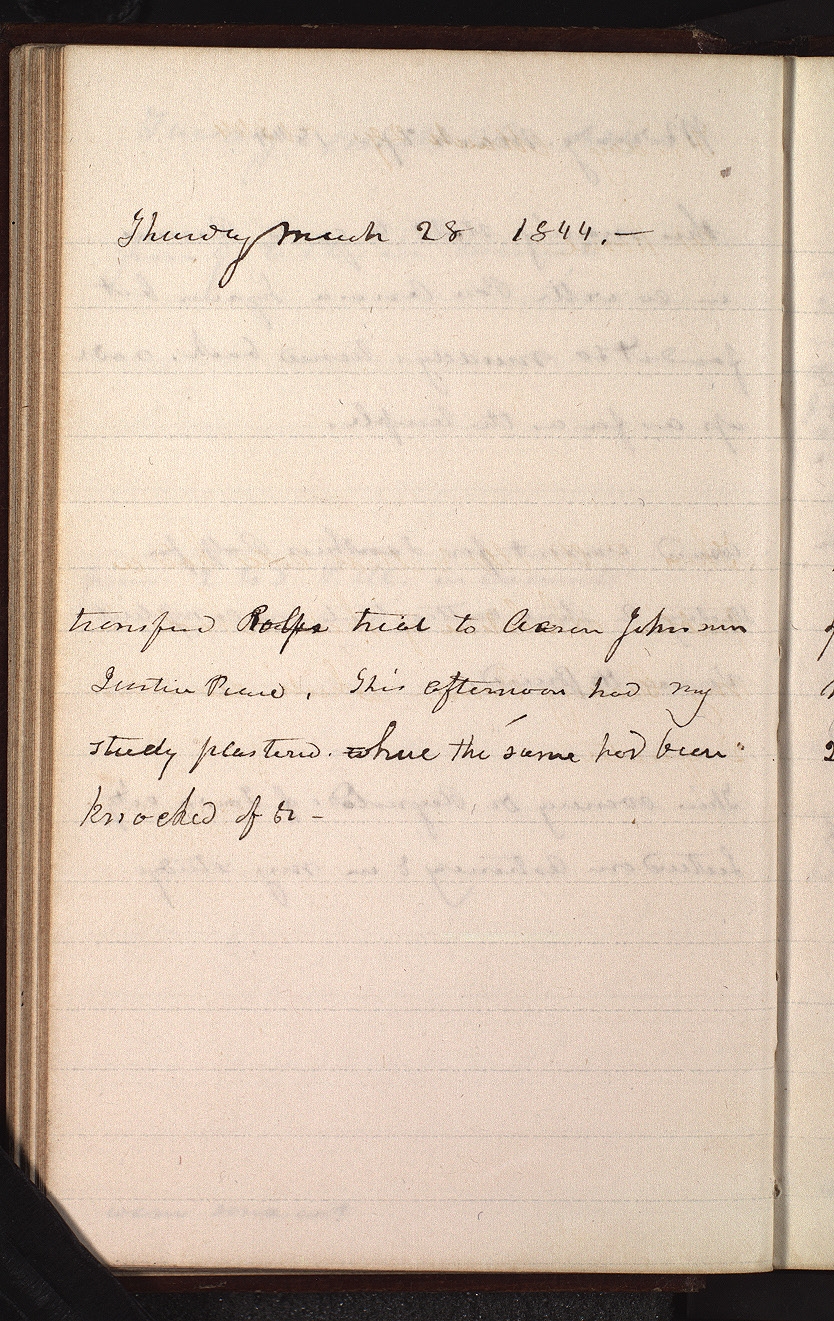 Thursday March 28 1844.—
transferd Rolfs trial to Aaron Johnson
Justice Peace. This afternoon had my
study plastered. where the same had been
knocked of &c -